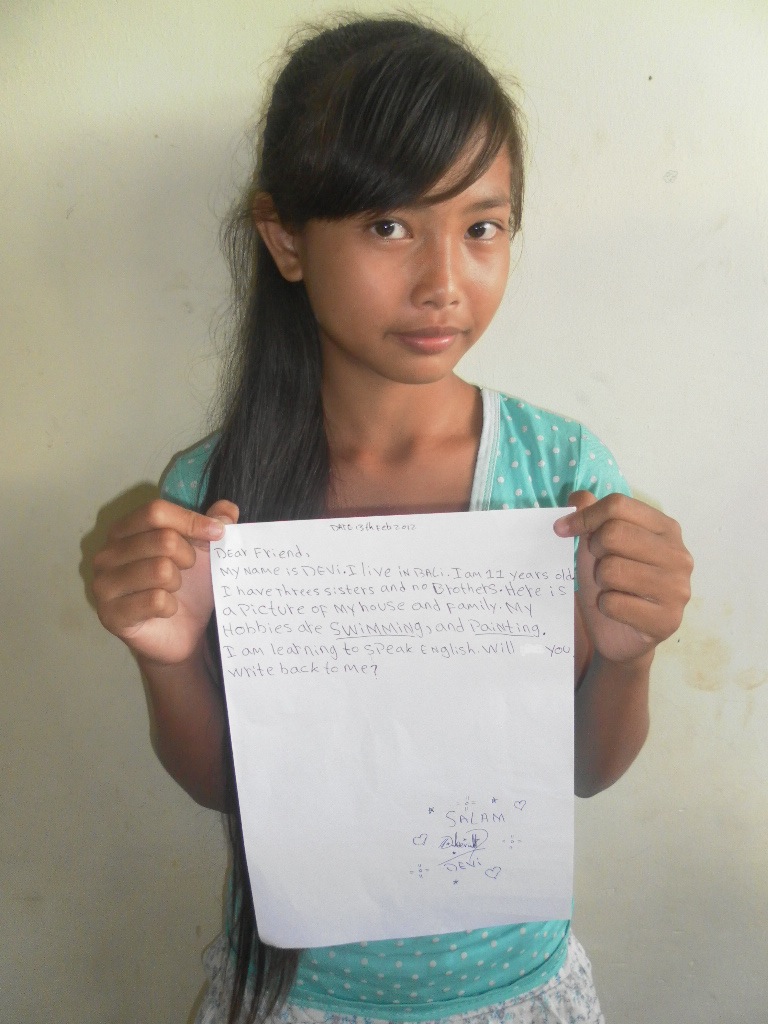 DATE 13th Feb 2012
Dear Friend,
My name is DEVi. I live in BALi. I am 11 years old.
I have threes sisters and no Brothers. Here is
a Picture of My house and family. My
Hobbies are SWiMMiNg, and Painting.
I am learning to speak English. Will you
write back to me?
SALAM
DEVi